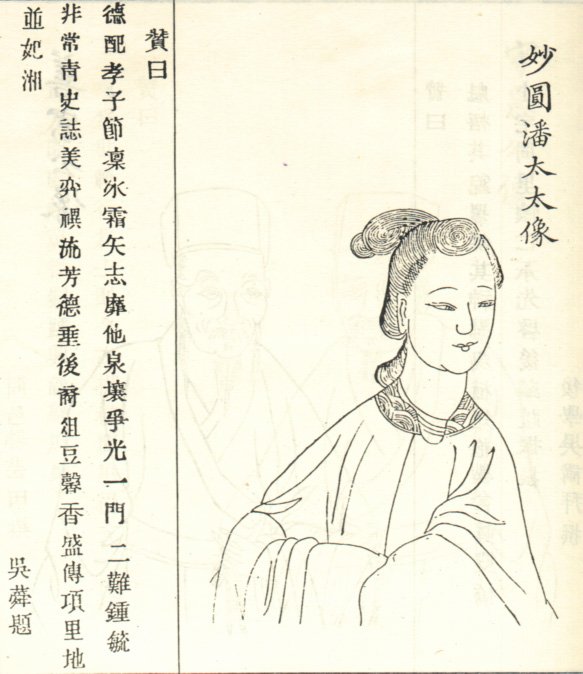 妙圓潘太太像
贊曰
德配孝子節凜冰霜矢志靡他泉壤爭光一門二難鍾毓
非常青史誌美弈禩流芳德垂後裔俎豆馨香盛傳項里地
並妃湘 吳蕣題